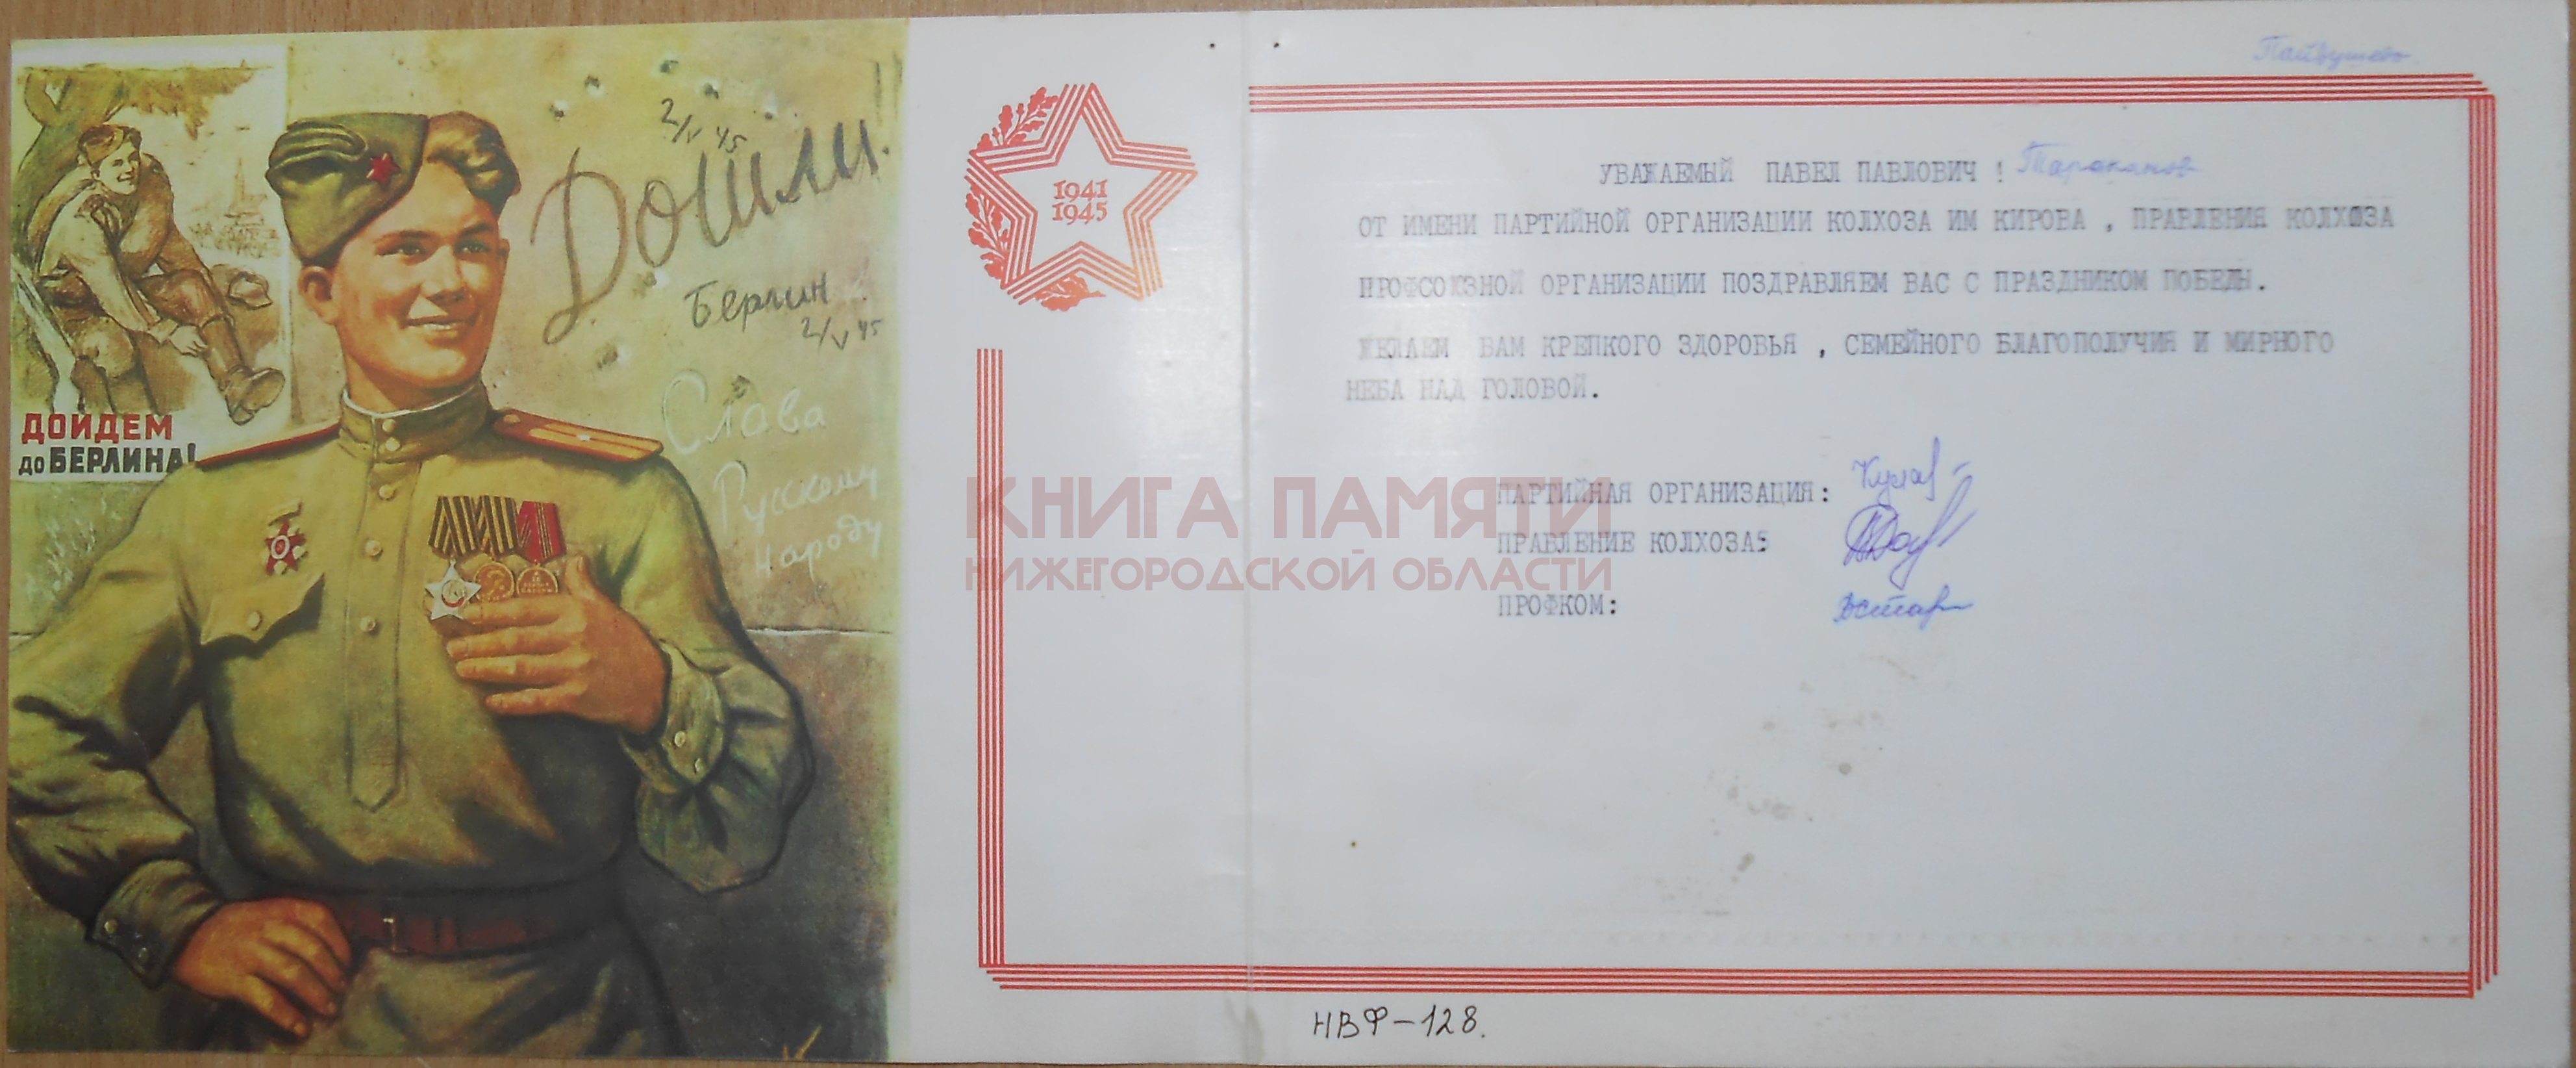 2/V 45
Дошли!
Берлин
2/V 45
Слава
Русскому
народу
ДОЙДЕМ
ДО БЕРЛИНА!
1941
1945
УВАЖАЕМЫЙ ПАВЕЛ ПАВЛОВИЧ ! Тараканов
ОТ ИМЕНИ ПАРТИЙНОЙ ОРГАНИЗАЦИИ КОЛХОЗА ИМ КИРОВА , ПРАВЛЕНИЯ КОЛХОЗА
ПРОФСОЮЗНОЙ ОРГАНИЗАЦИИ ПОЗДРАВЛЯЕМ ВАС С ПРАЗДНИКОМ ПОБЕДЫ.
ЖЕЛАЕМ ВАМ КРЕПКОГО ЗДОРОВЬЯ , СЕМЕЙНОГО БЛАГОПОЛУЧИЯ И МИРНОГО
НЕБА НАД ГОЛОВОЙ.
ПАРТИЙНАЯ ОРГАНИЗАЦИЯ:
ПРАВЛЕНИЕ КОЛХОЗА:
ПРОФКОМ:
КНИГА ПАМЯТИ
НИЖЕГОРОДСКОЙ ОБЛАСТИ
НВФ-128.